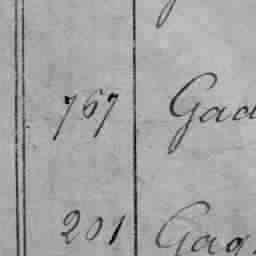 767 Gad
201 Gag